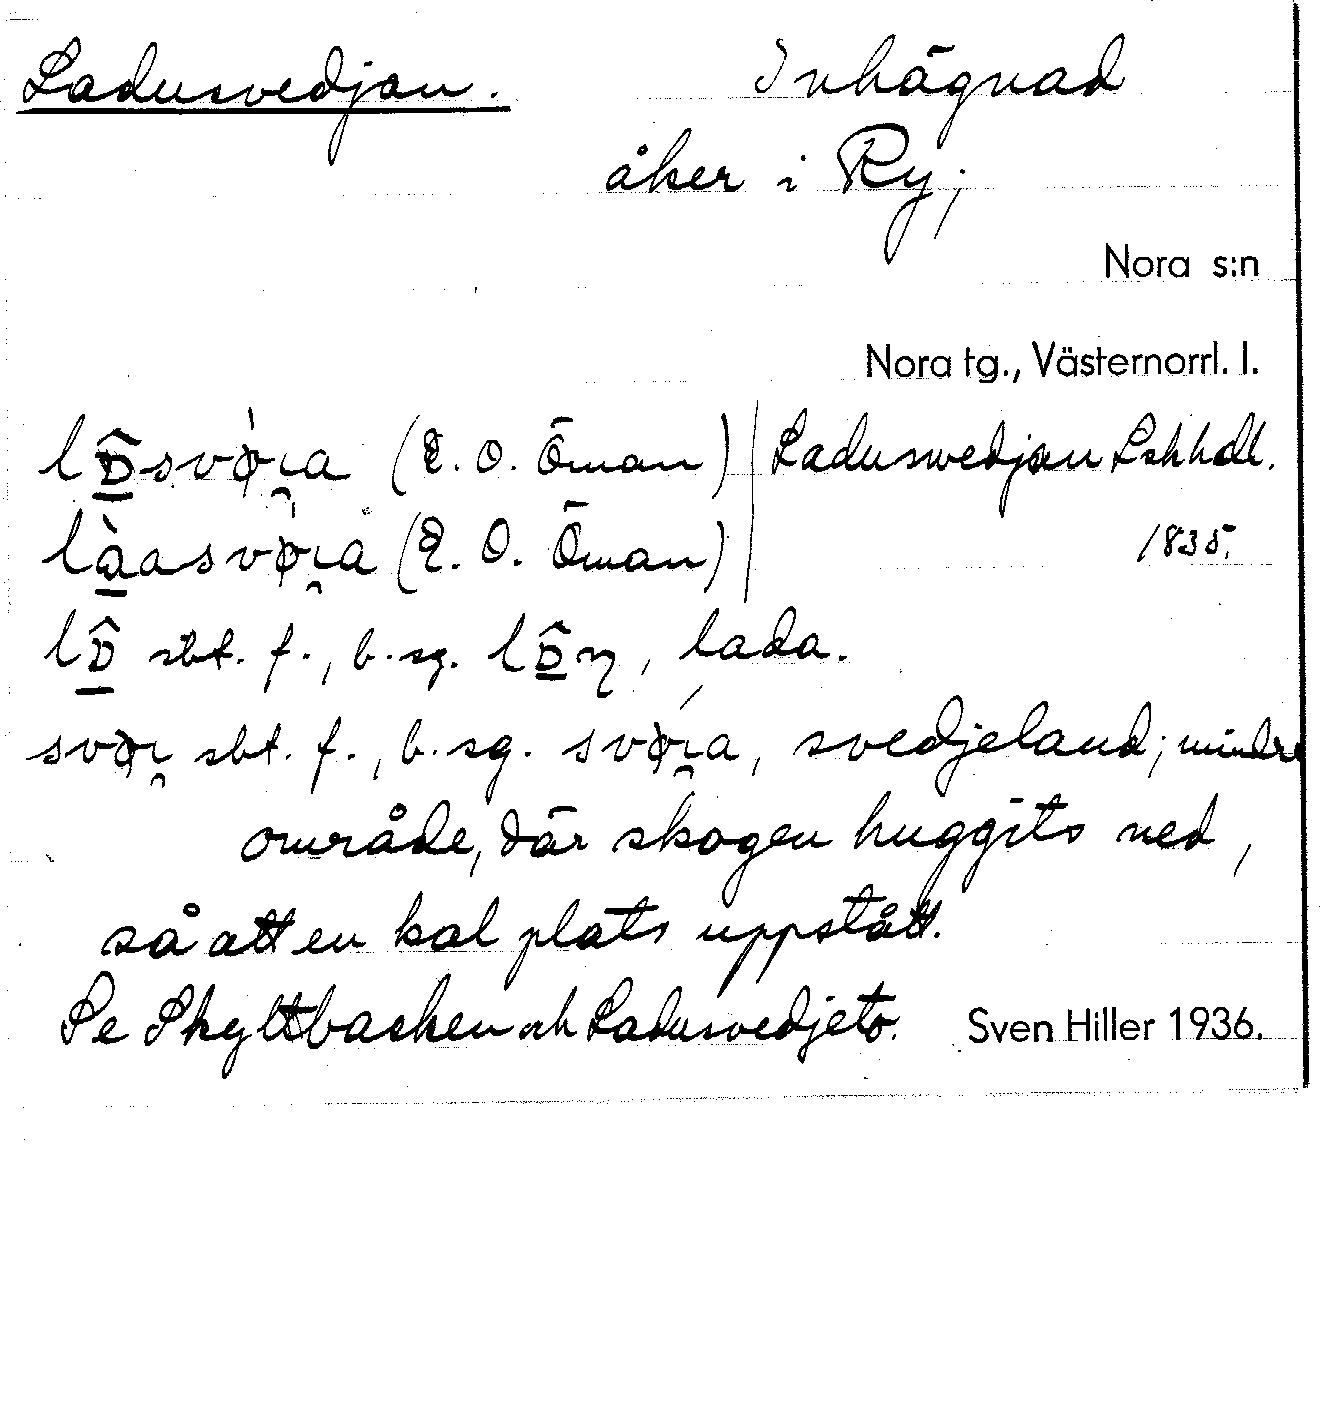 Ladusvedjan. Inhägnad
åker i Ry;
Nora s:n
Nora tg., Västernorrl. l.
(E. O. Öman) Laduswedjan Lskhdl.
(E. O. Öman) 1835.
sbt. f., b. sg. , lada.
sbt. f., b. sg. , svedjeland; mindre
område, där skogen huggits ned,
så att en kal plats uppstått.
Se Skyltbacken och Ladusvedjeto. Sven Hiller 1936.